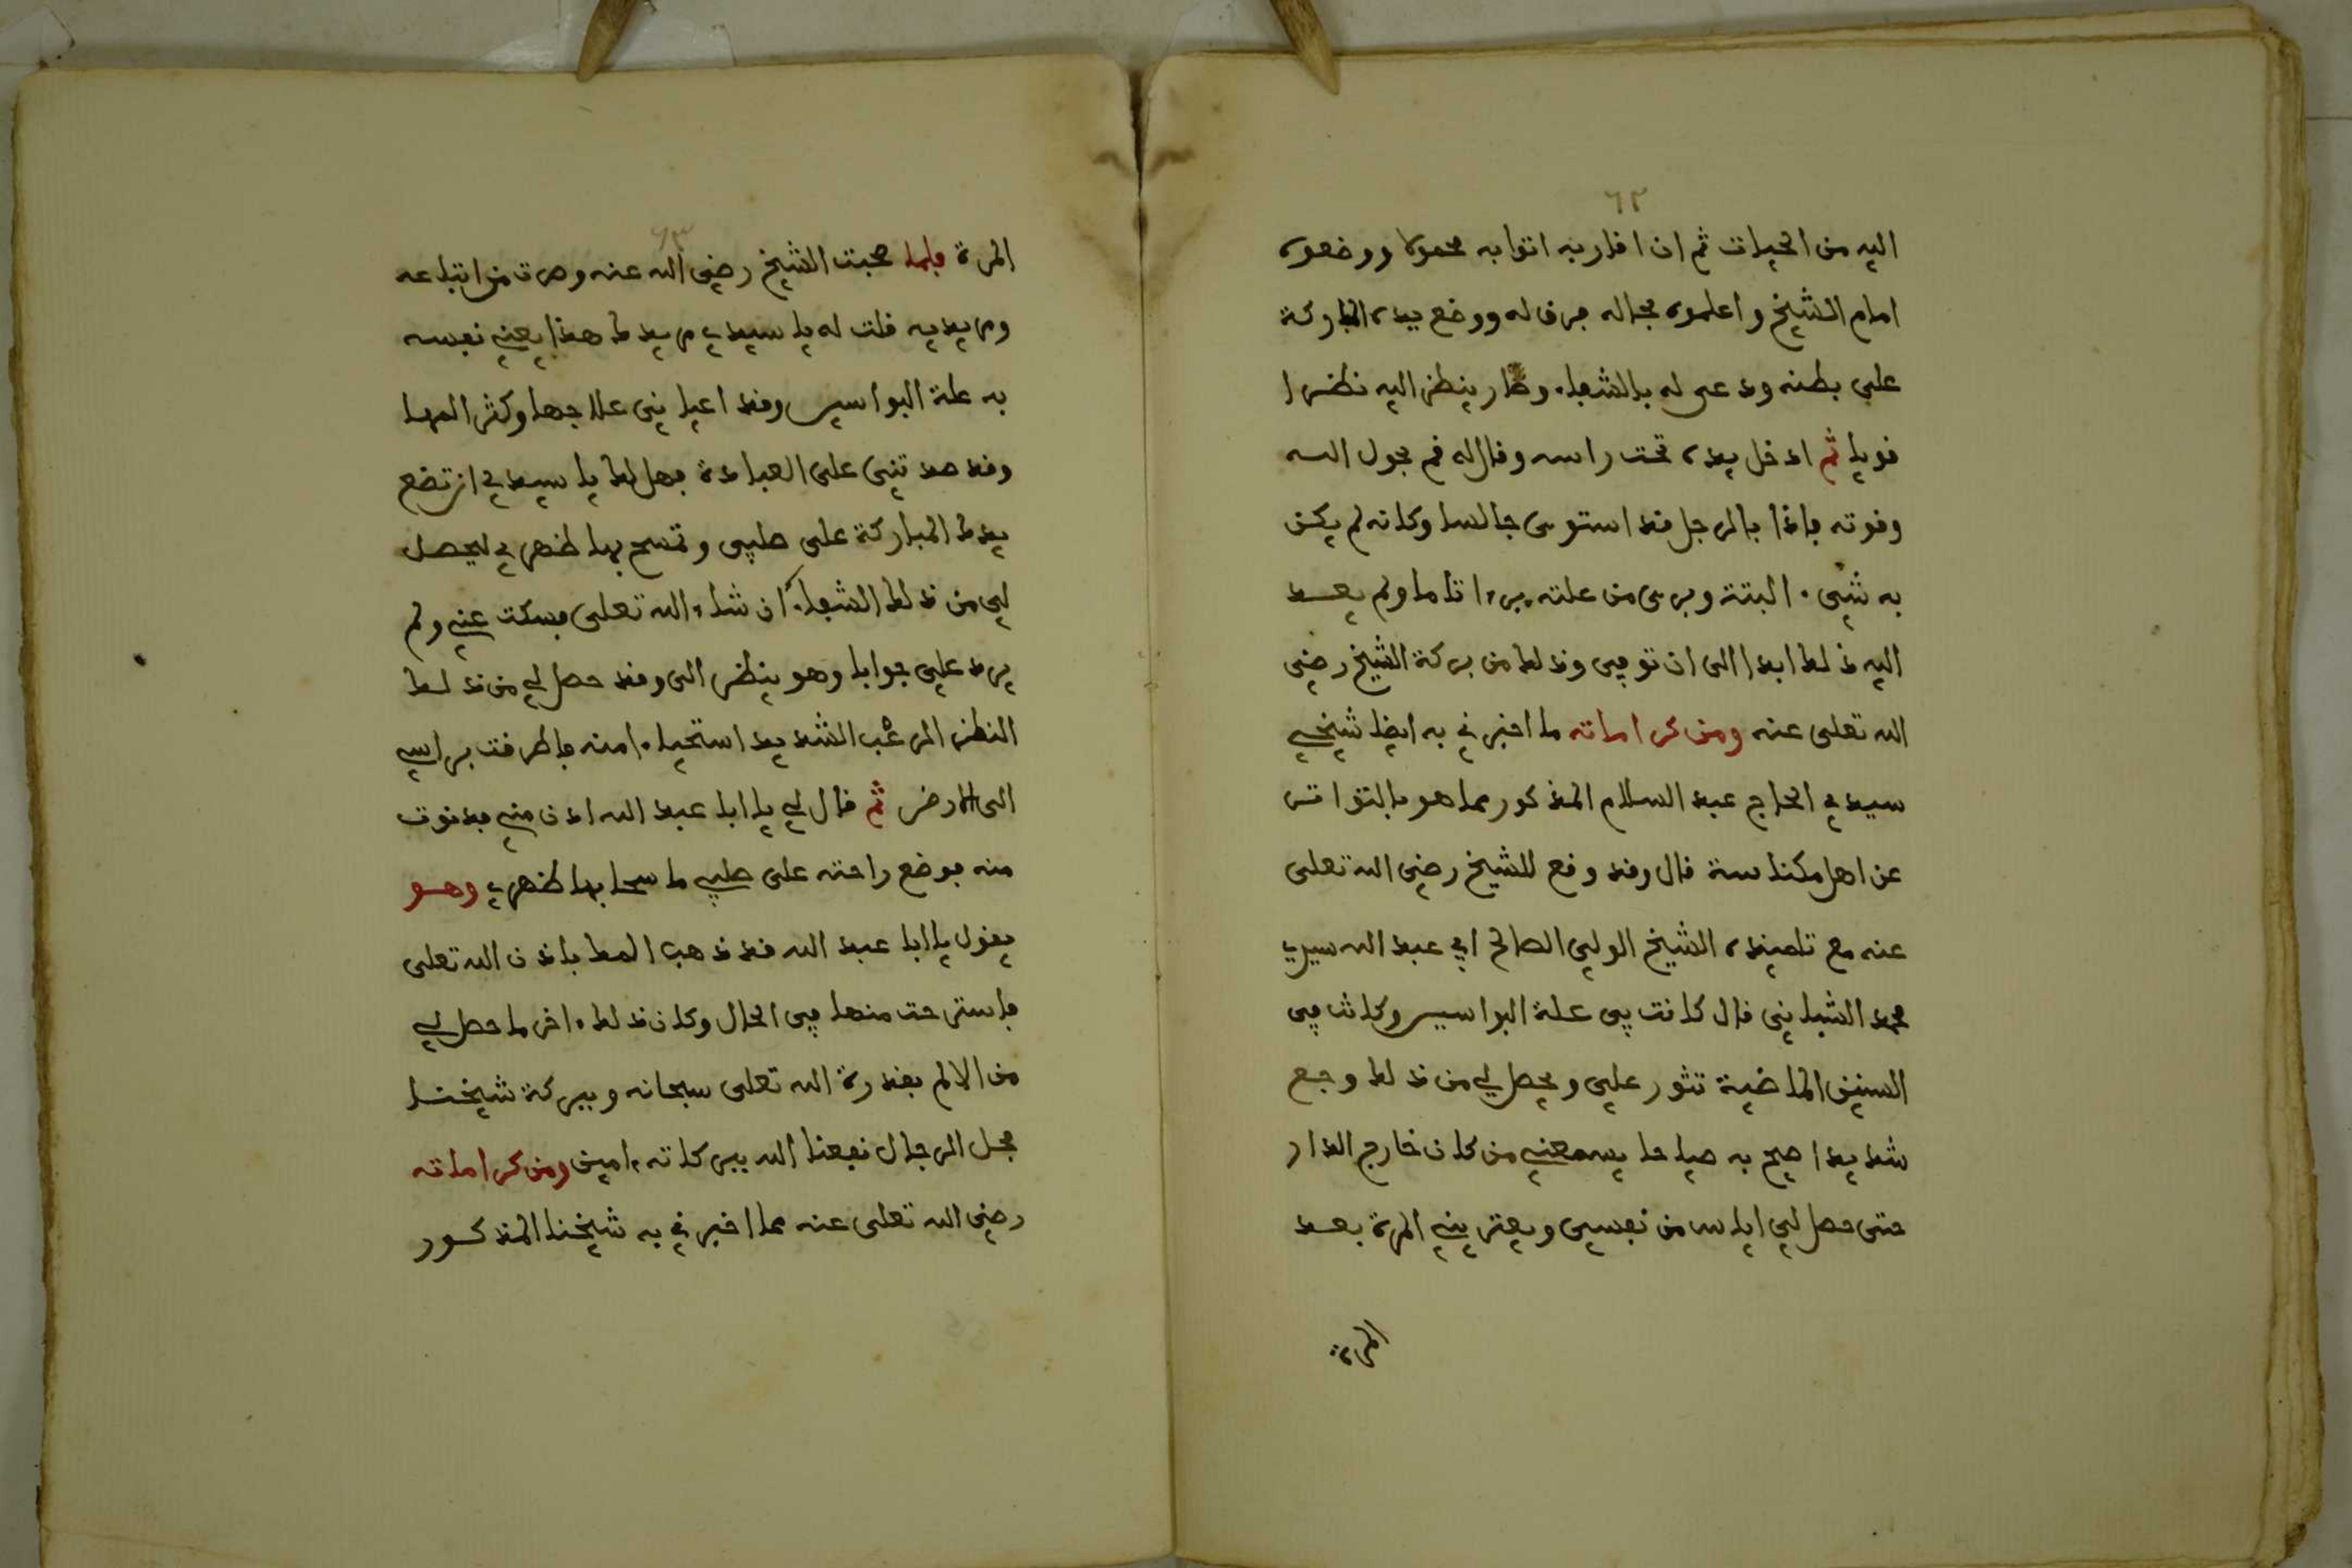 ٦٢
اليه من الحيات ثم ان اقاربه اتوا به محمولا ووضعوه
امام الشيخ واعلموه بحاله فرق له ووضع يده المباركة
على بطنه ودعى له بالشفاء وصار ينظر اليه نظرا
قويا ثم ادخل يده تحت راسه وقال له قم بحول الله
وقوته فاذا بالرجل قد استوى جالسا وكانه لم يكن
به شيء البتة وبرى من علته برءا تاما ولم يعد
اليه ذلك ابدا الى ان توفي وذلك من بركة الشيخ رضي
الله تعلى عنه ومن كراماته ما اخبرني به ايضا شيخي
سيدي الحاج عبد السلام المذكور مما هو بالتواتر
عن اهل مكناسة قال وقد وقع للشيخ رضي الله تعلى
عنه مع تلميذه الشيخ الولي الصالح ابي عبد الله سيدي
محمد الشباني قال كانت بي علة البواسير وكانت في
السنين الماضية تثور علي ويحصل لي من ذلك وجع
شديد اصيح به صياحا يسمعني من كان خارج الدار
حتى حصل لي اياس من نفسي ويعتريني المرة بعد
المرة
٦٣
المرة فلما صحبت الشيخ رضي الله عنه وصرت من اتباعه
ومريديه قلت له يا سيدي مريدك هذا يعني نفسه
به علة البواسير وقد اعياني علاجها وكثر المها
وقد صدتني على العبادة فهل لك يا سيدي ان تضع
يدك المباركة على صلبي وتمسح بها ظهري ليحصل
لي من ذلك الشفاء ان شاء الله تعلى فسكت عني ولم
يرد علي جوابا وهو ينظر الي وقد حصل لي من ذلك
النظر الرعب الشديد استحياء منه فاطرقت براسي
الى الارض ثم قال لي يا ابا عبد الله ادن مني فدنوت
منه فوضع راحته على صلبي ماسحا بها ظهري وهو
يقول يا ابا عبد الله قد ذهب المك باذن الله تعلى
فاسترحت منها في الحال وكان ذلك ءاخر ما حصل لي
من الالم بقدرة الله تعلى سبحانه وببركة شيخنا
فحل الرجال نفعنا الله ببركاته ءامين ومن كراماته
رضي الله تعلى عنه مما اخبرني به شيخنا المذكور